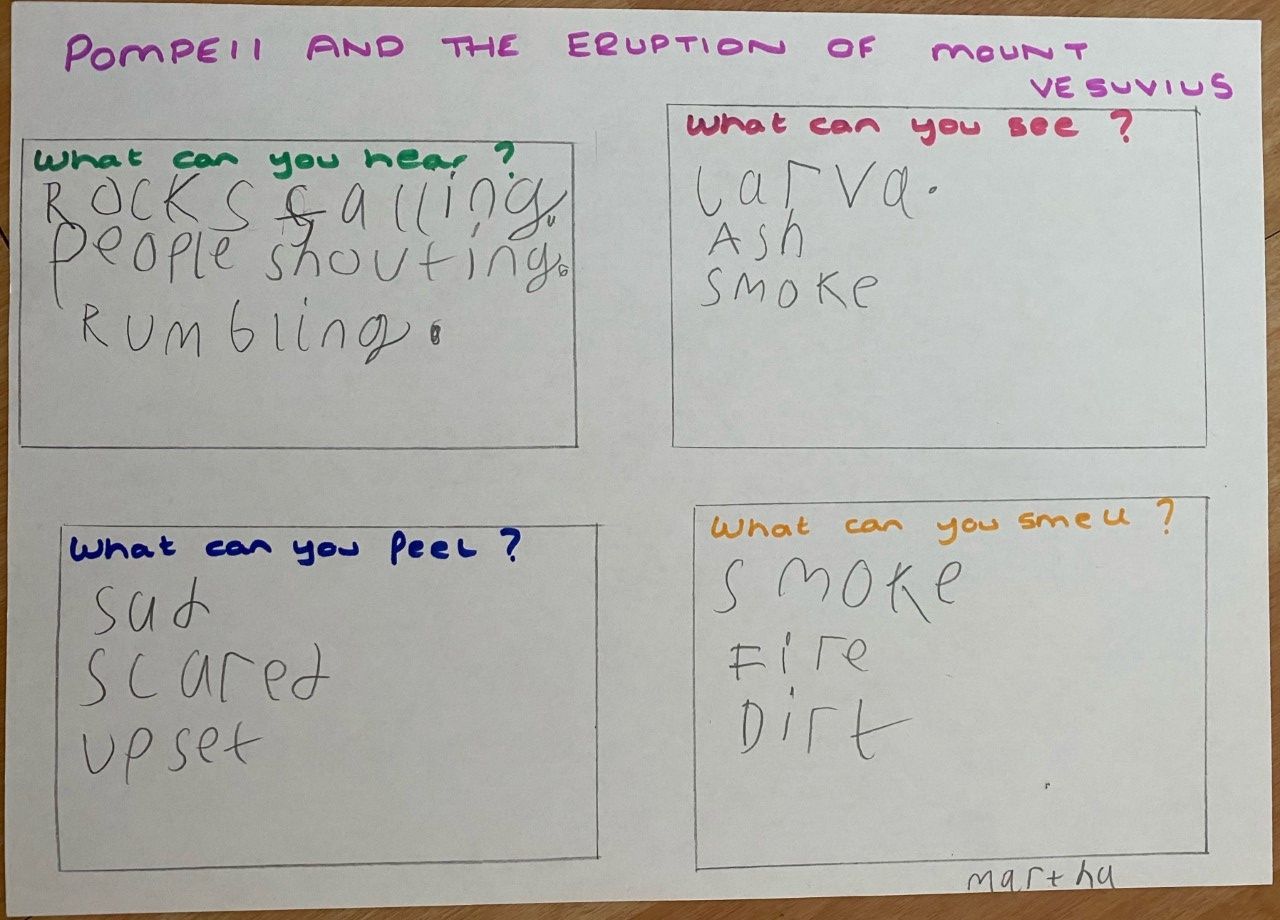 POMPEII AND THE ERUPTION OF MOUNT
VESUVIUS
What can you hear ?
Rocks falling.
People shouting.
Rumbling.
What can you see ?
Larva.
Ash
Smoke
What can you feel ?
sad
scared
upset
What can you smell ?
Smoke
Fire
Dirt
martha